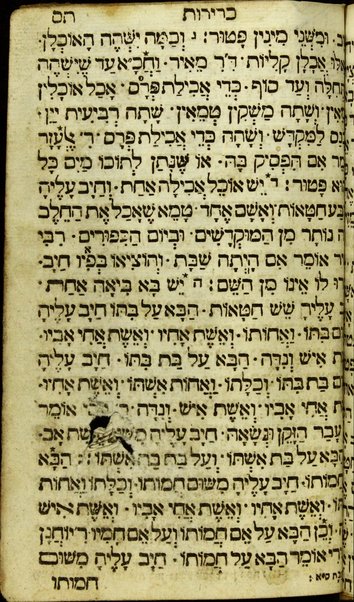 כרירות תס
ב׳ ומשני מינין פטור׃ ג וכמה ישהה האוכלן׳
לו אכלן קליות׳ ד״ר מאיר׳ וחכ״א עד שישהה
חלה ועד סוף׳ כדי אכילת פרס׳ אכל אוכלין
אין׳ ושתה משקין טמאין׳ שתה רביעית יין׳
נס למקדש׳ ושהה כדי אכילת פרס׳ ר׳ אלעזר
מר אם הפסיק בה׳ או שנתן לתוכו מים כל
א פטור׃ ד יש אוכל אכילה אחת׳ וחייב עליה
בע חטאות׳ ואשם אחד׳ טמא שאכל את החלב
ה נותר מן המוקדשים׳ וביום הכפורים׳ רבי
יר אומר אם היתה שבת׳ והוציאו בפיו חייב׳
רו לו אינו מן השם׃ ה יש בא ביאה אחת׳
עליה שש חטאות׳ הבא על בתו חייב עליה
ם בתו׳ ואחותו׳ ואשת אחיו׳ ואשת אחי אביו׳
ת איש ונדה׳ הבא על בת בתו׳ חייב עליה
ם בת בתו׳ וכלתו׳ ואחות אשתו׳ ואשת אחיו׳
ת אחי אביו׳ ואשת איש׳ ונדה׳ אומר
עבר הזקן ונשאה׳ חייב עליה משום אשת אב׳
א על בת אשתו׳ ועל בת בת אשתו׃ ו הבא
חמותו׳ חייב עליה משום חמותו׳ וכלתו׳ ואחות
ו׳ ואשת אחיו׳ ואשת אחי אביו׳ ואשת איש
ה׳ וכן הבא על אם חמותו׳ ועל אם חמיו׳ ר׳ יוחנן
רי אומר הבא על חמותו׳ חייב עליה משום
חמותו